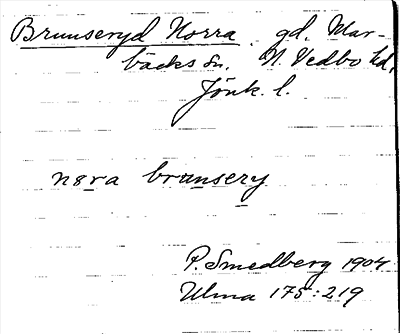 Brunseryd Norra gd. Mar-
bäcks sn. N. Vedbo hd.
Jönk. l.
nɷra brunsery
P. Smedberg 1904
Ulma 175:219